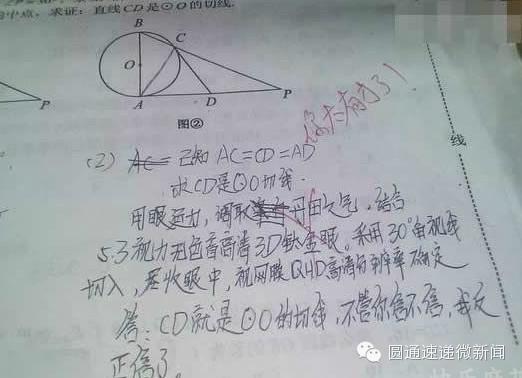 的中点，求证：直线CD是⊙O的切线.
B
C
O
A
D
P
P
图②
你太有才了！
线
(2) 已知 AC=CD=AD
求CD是⊙O切线.
用眼运力，调取丹田之气，结合
5.3视力无色盲高清3D钛金眼。利用30°角视线
切入，尽收眼中，视网膜QHD高清分辨率确定
答：CD就是⊙O的切线，不管你信不信，我反
正信了。
圆通速递微新闻